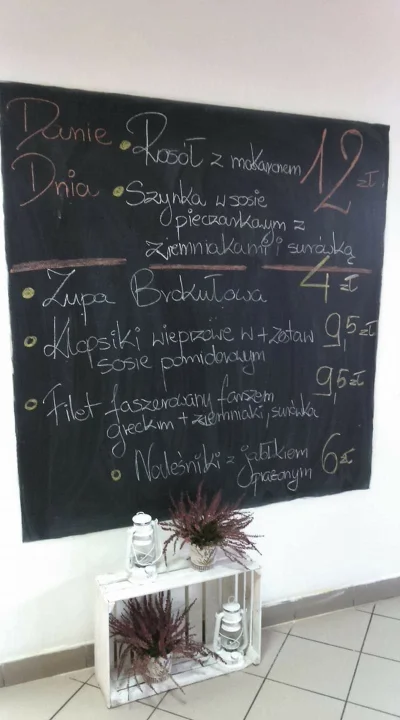 Danie Dnia
• Rosół z makaronem 12 zł
• Szynka w sosie
pieczarkowym z
ziemniakami i surówką
• Zupa Brokułowa 4 zł
• Klopsiki wieprzowe w + zestaw 9,5 zł
sosie pomidorowym
• Filet faszerowany farszem 9,5 zł
greckim + ziemniaki, surówka
• Naleśniki z jabłkiem 6 zł
prażonym